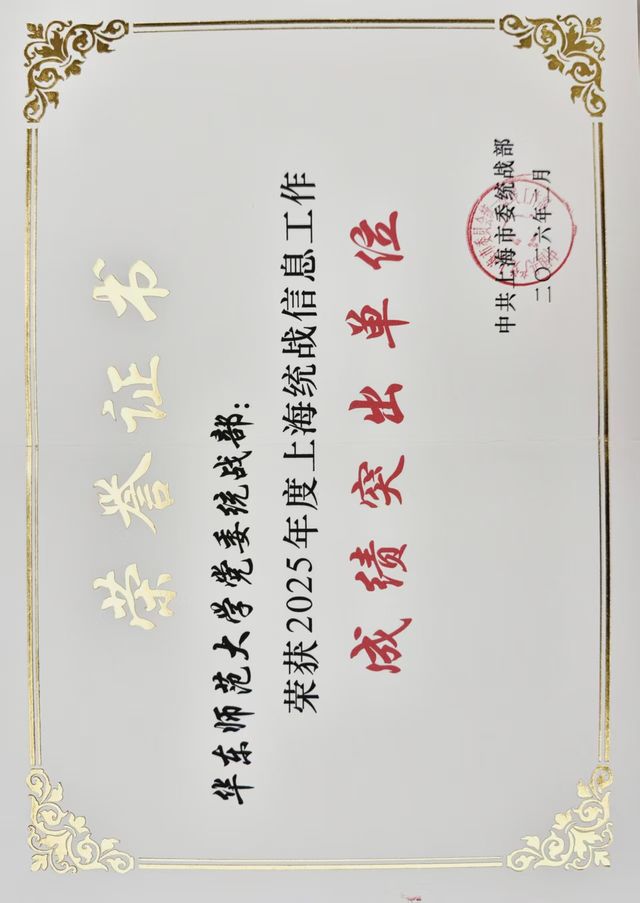 荣誉证书
华东师范大学党委统战部：
荣获2025年度上海统战信息工作
成绩突出单位
中共上海市委统战部
二〇二六年二月